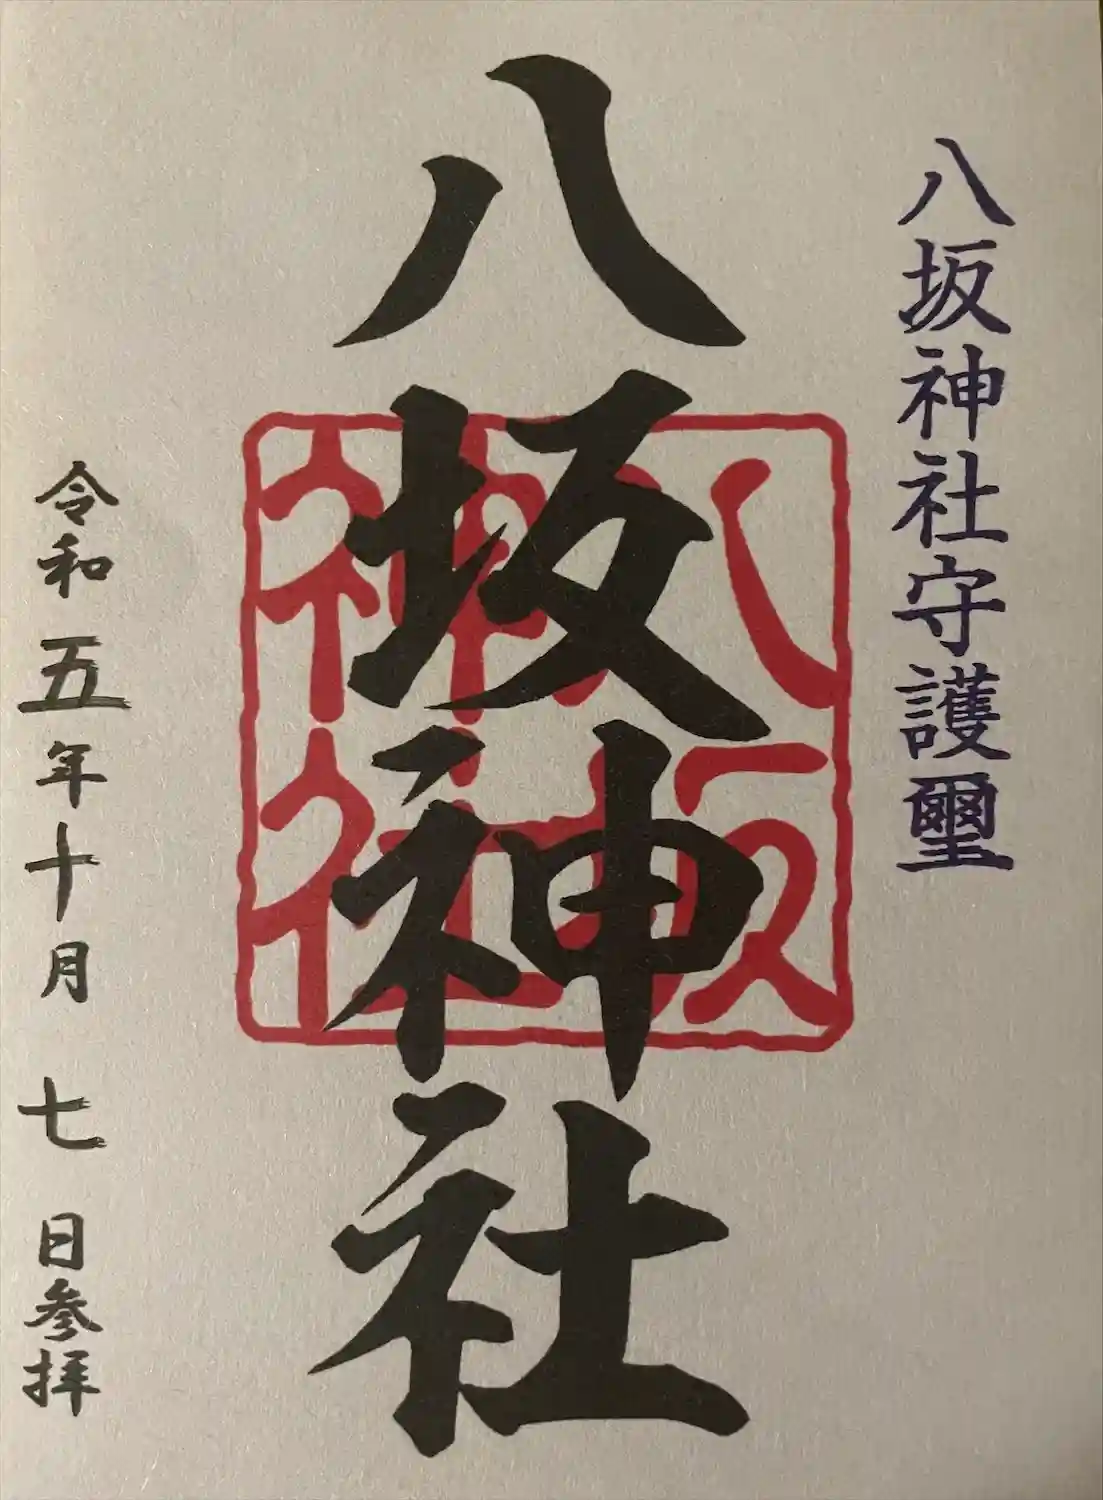 八坂神社守護璽
八坂神社
八坂
神社
令和五年十月七日参拝